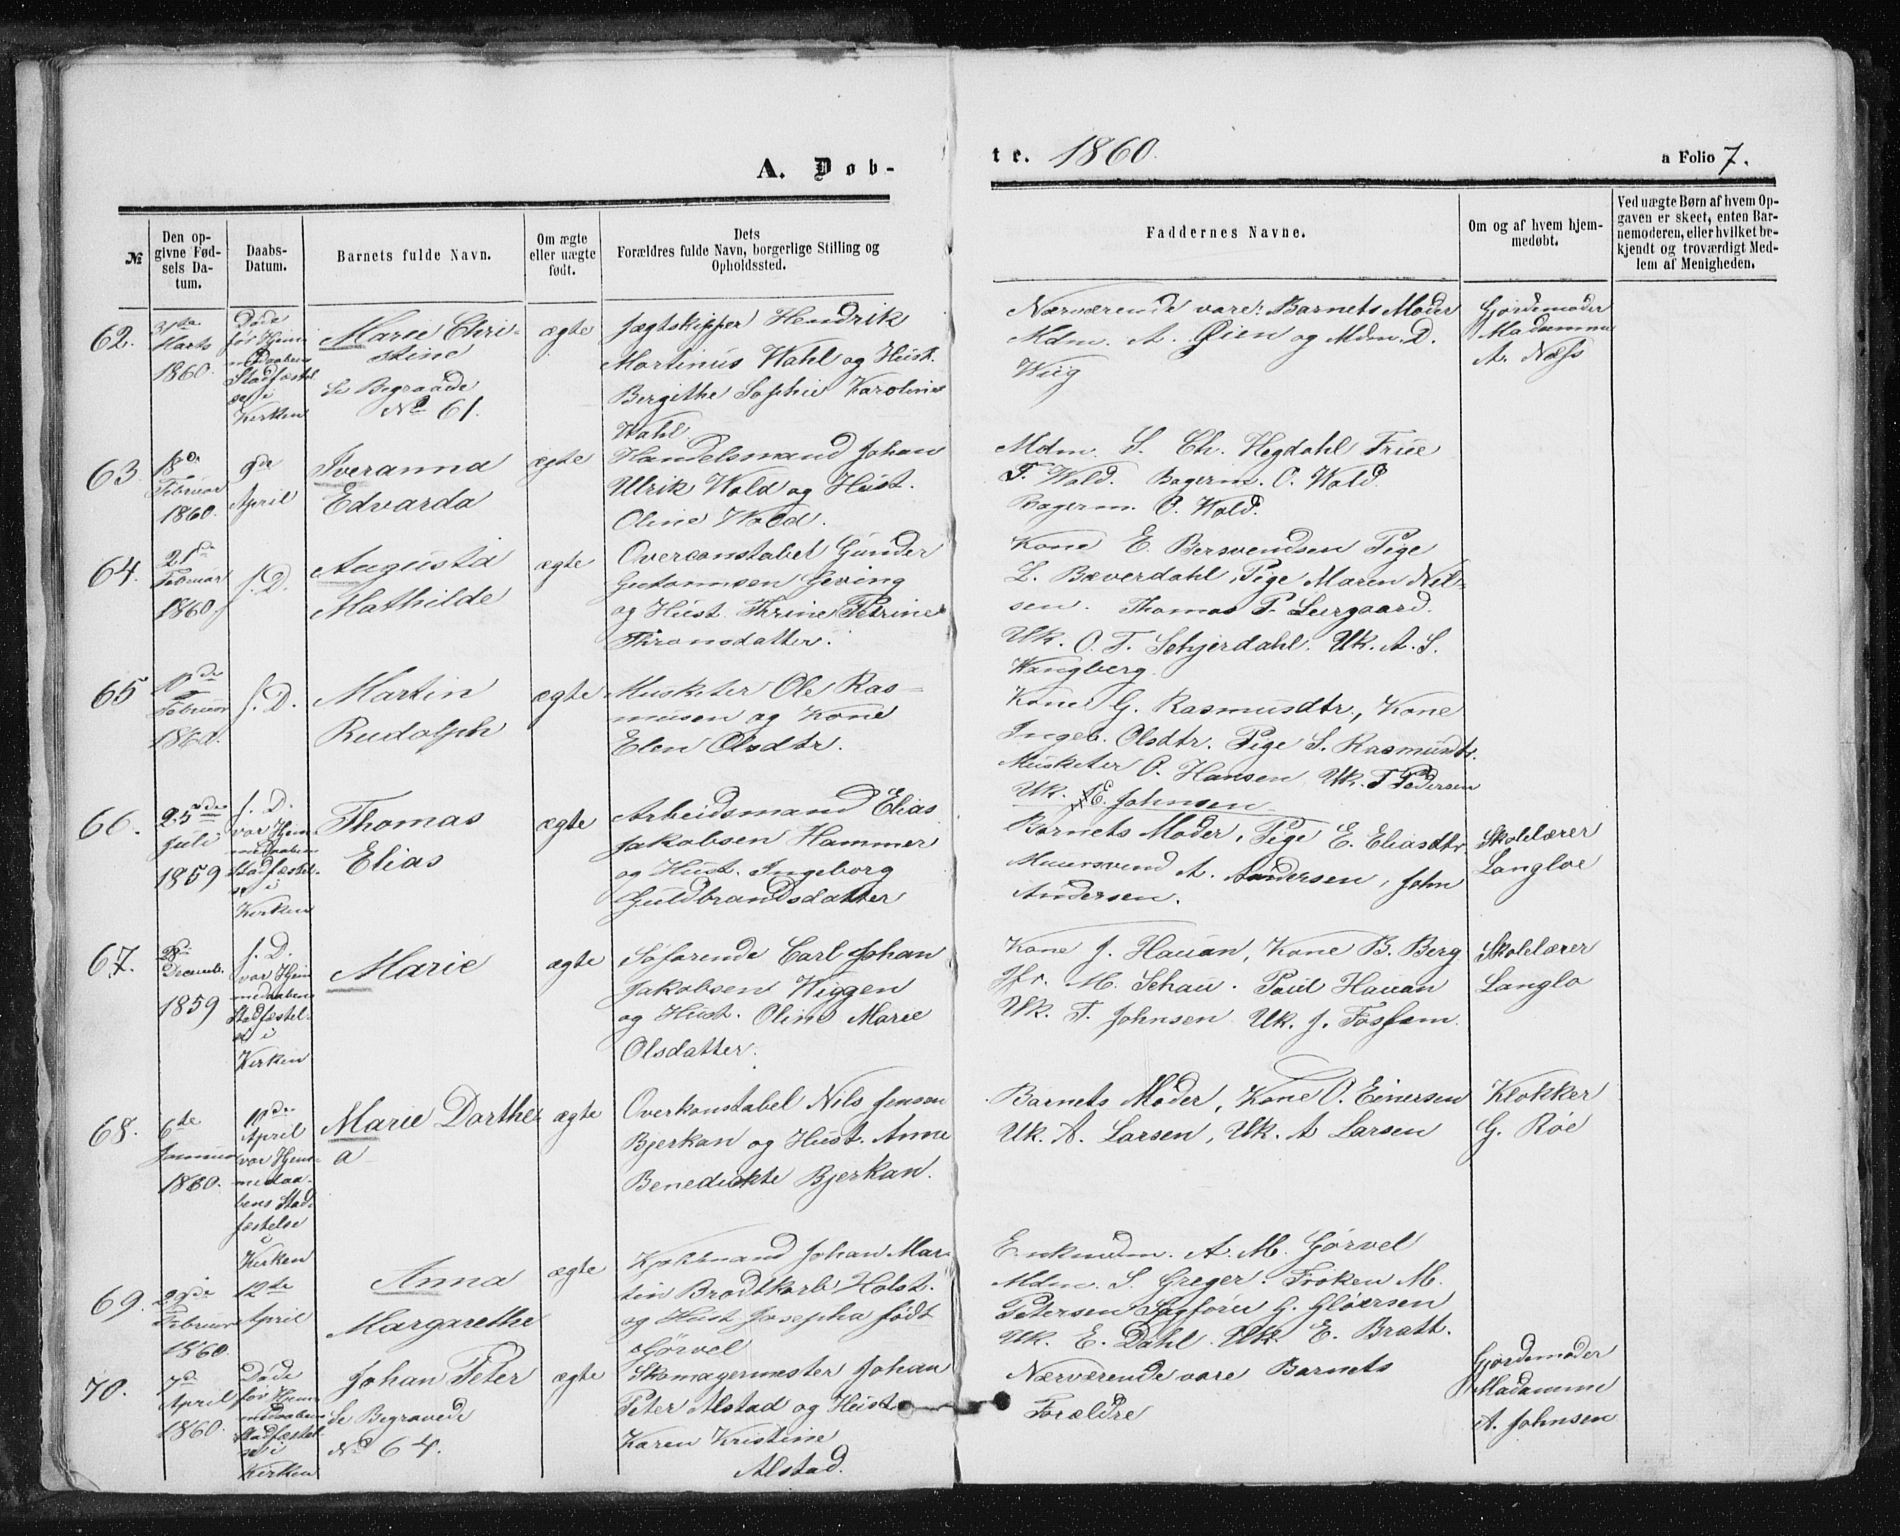 A. Døb-
te. 1860.
a Folio 7.
№
Den op-
givne Fød-
sels Da-
tum.
Daabs-
Datum.
Barnets fulde Navn.
Om ægte
eller uægte
født.
Dets
Forældres fulde Navn, borgerlige Stilling og
Opholdssted.
Faddernes Navne.
Om og af hvem hjem-
medøbt.
Ved uægte Børn af hvem Op-
gaven er skeet, enten Bar-
nemoderen, eller hvilket be-
kjendt og troværdigt Med-
lem af Menigheden.
62.
31te
Marts
1860.
Døde
før Hjem
medaabens
Stadfæstel
se i
Kirken
Marie Chri-
stine
Se Begravede
No 61.
ægte
Jægtskipper Hendrik
Martinus Wahl og Hust.
Bergithe Sophie Karoline
Wahl
Nærværende vare: Barnets Moder
Mdm. A. Øien og Mdm. D.
Wiig
Gjordemoder
Madamme
A. Næss
63.
18de
Februar
1860.
9de
April
Iveranna
Edvarda
ægte
Handelsmand Johan
Ulrik Wold og Hust.
Oline Wold.
Mdm. S. Ch. Hegdahl Frue
F. Wold. Bagerm. C. Wold
Bagerm. O. Wold.
64.
21de
Februar
1860.
s. D.
Augusta
Mathilde
ægte
Overconstabel Gunder
Geving
og Hust. Thrine Petrine
Thronsdatter.
Kone E. Bersvendsen Pige
L. Bæverdahl, Pige Maren Niel-
sen. Thomas P. Leergaard.
Uk. O. T. Schjerdahl. Uk. A. S.
Wangberg.
65
Februar
1860.
s. D.
Martin
Rudolph
ægte
Musketer Ole Ras-
musen og Kone
Elen Olsdtr.
Kone G. Rasmusdtr., Kone
Ingeb. Olsdtr. Pige S. Rasmusdtr.
Musketer O. Hansen Uk. T Pedersen
Uk. E. Johnsen
66.
25de
Juli
1859
s. D.
var Hjem
medaabens
Stadfæstel-
se i
Kirken
Thomas
Elias
ægte
Arbeidsmand Elias
Jakobsen Hammer
og Hust. Ingeborg
Guldbrandsdatter
Barnets Moder, Pige E. Eliasdtr.
Muursvend A. Andersen, John
Andersen.
Skolelærer
Langloe
67.
28de
Decemb.
1859
s. D.
var Hjem
medaabens
Stadfæstel-
se i
Kirken
Marie
ægte
Søfarende Carl Johan
Jakobsen Wiggen
og Hust. Oline Marie
Olsdatter.
Kone J. Hauan, Kone B. Berg
Jfr. M. Schau. Paul Hauan
Uk. T. Johnsen Uk. J. Fossem
Skolelærer
Langlo
68.
6te
Januar
1860.
11de
April
var Hjem-
medaa-
bens Stad-
fæstelse
i
Kirken
Marie Dorthe-
a
ægte
Overkonstabel Nils Jensen
Bjerkan og Hust. Anne
Benedikte Bjerkan.
Barnets Moder, Kone O. Einersen
Uk. A. Larsen, Uk. A Larsen
Klokker
G. Røe
69.
Februar
1860.
12te
April
Anna
Margarethe
ægte
Kjøbmand Johan Mar-
tin Brodtkorb Holst.
og Hust Josepha født
Gørvel
Enkmdm. A. M. Gørvel
Mdm. S. Greger. Frøken M.
Petersen Sagfører G. Gløersen
Uk. E. Dahl. Uk. E. Bratt.
70.
7de
April
1860.
Døde
før Hjem
medaabens
Stadfæstel
se i
Kirken
Johan Peter
Se Begravede
No 64.
ægte
Skomagermester Johan
Peter Alstad og Hust
Karen Kristine
Alstad.
Nærværende vare Barnets
Forældre
Gjordemoder
Madamme
A. Johnsen